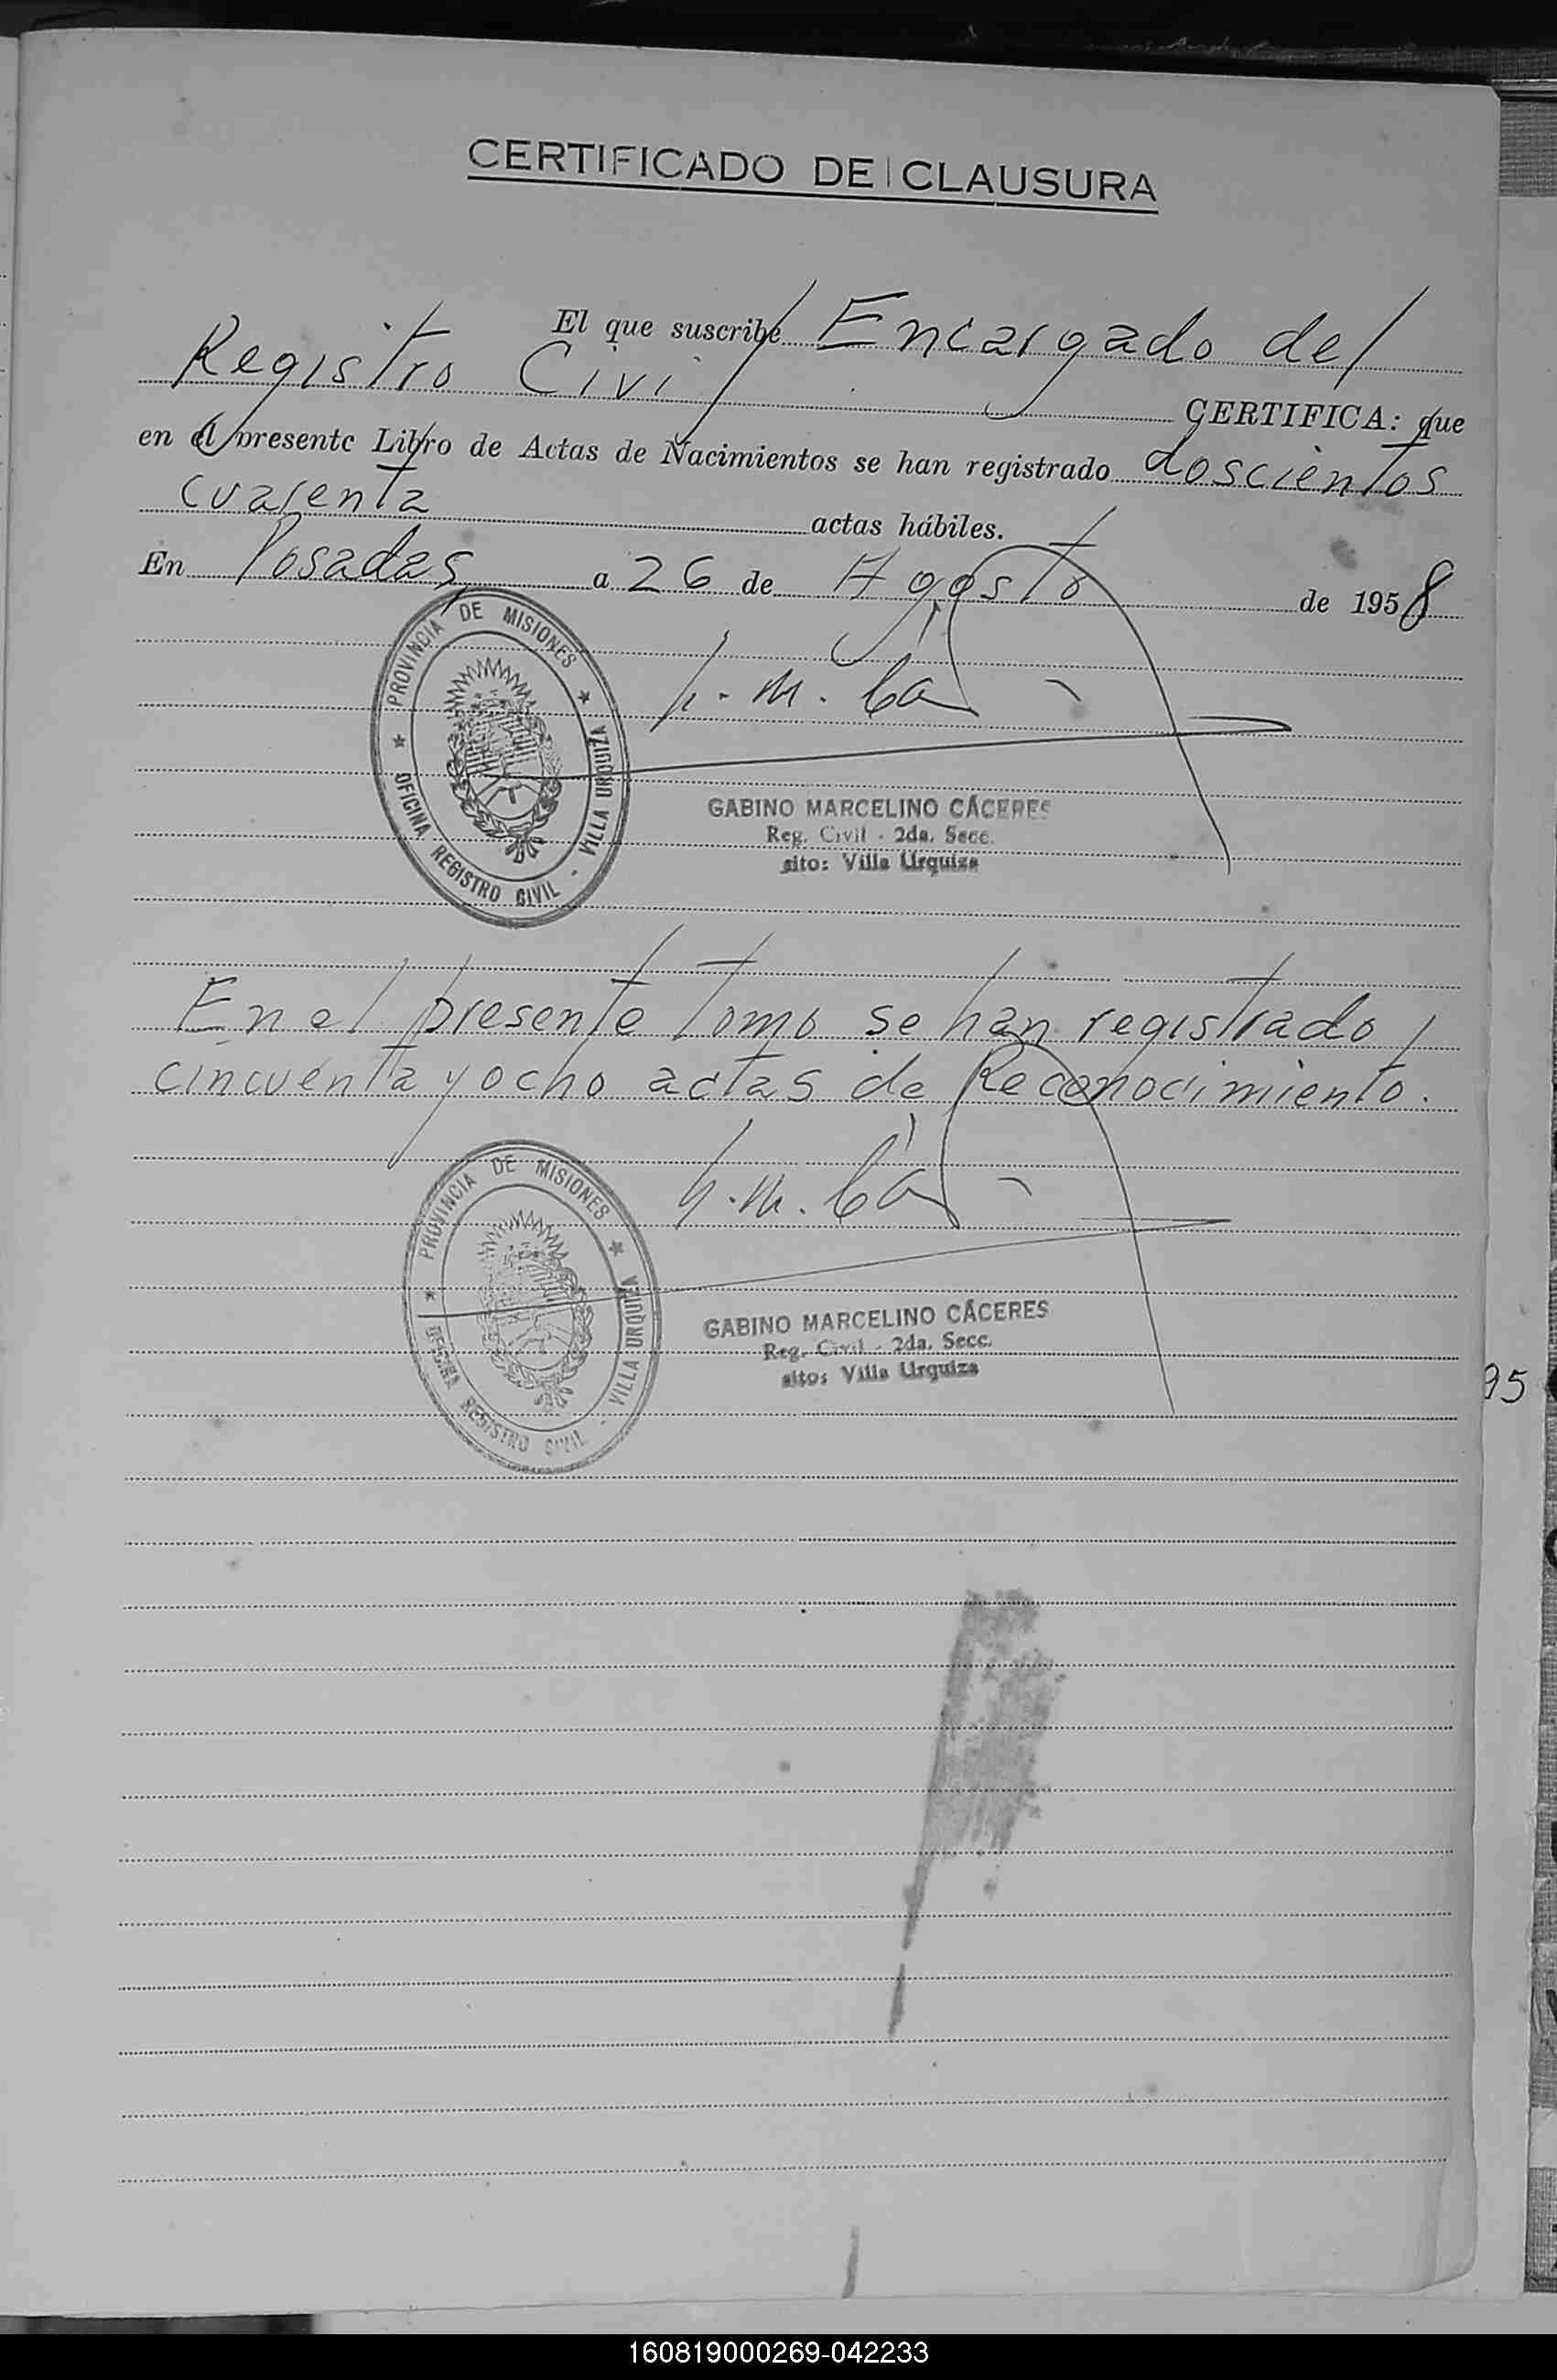 CERTIFICADO DE CLAUSURA
El que suscribe Encargado del
Registro Civil CERTIFICA: que
en el presente Libro de Actas de Nacimientos se han registrado doscientos
cuarenta actas hábiles.
En Posadas, a 26 de Agosto de 1958
PROVINCIA DE MISIONES
OFICINA REGISTRO CIVIL - VILLA URQUIZA
GABINO MARCELINO CÁCERES
Reg. Civil - 2da. Secc.
sito: Villa Urquiza
En el presente tomo se han registrado
cincuenta y ocho actas de Reconocimiento.
PROVINCIA DE MISIONES
OFICINA REGISTRO CIVIL - VILLA URQUIZA
GABINO MARCELINO CÁCERES
Reg. Civil - 2da. Secc.
sito: Villa Urquiza
95
160819000269-042233